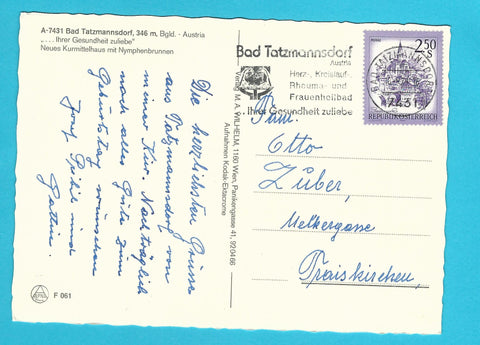 A-7431 Bad Tatzmannsdorf, 346 m, Bgld. - Austria
"....Ihrer Gesundheit zuliebe"
Neues Kurmittelhaus mit Nymphenbrunnen
Die herzlichsten Grüsse
aus Tatzmannsdorf von
meiner Kur. Nachträglich
noch alles Gute zum
Geburtstag wünschen
Josef und
Gattin.
F 061
Verlag M. A. WILHELM, 1160 Wien, Panikengasse 41, 92 04 66
Aufnahmen Kodak-Ektacrome
Bad Tatzmannsdorf
Austria
Herz-, Kreislauf-,
Rheuma- und
Frauenheilbad
Ihrer Gesundheit zuliebe
BAD TATZMANNSDORF
7431
2.50
S
REPUBLIK ÖSTERREICH
Fam.
Otto
Zuber,
Melkergasse
Traiskirchen,